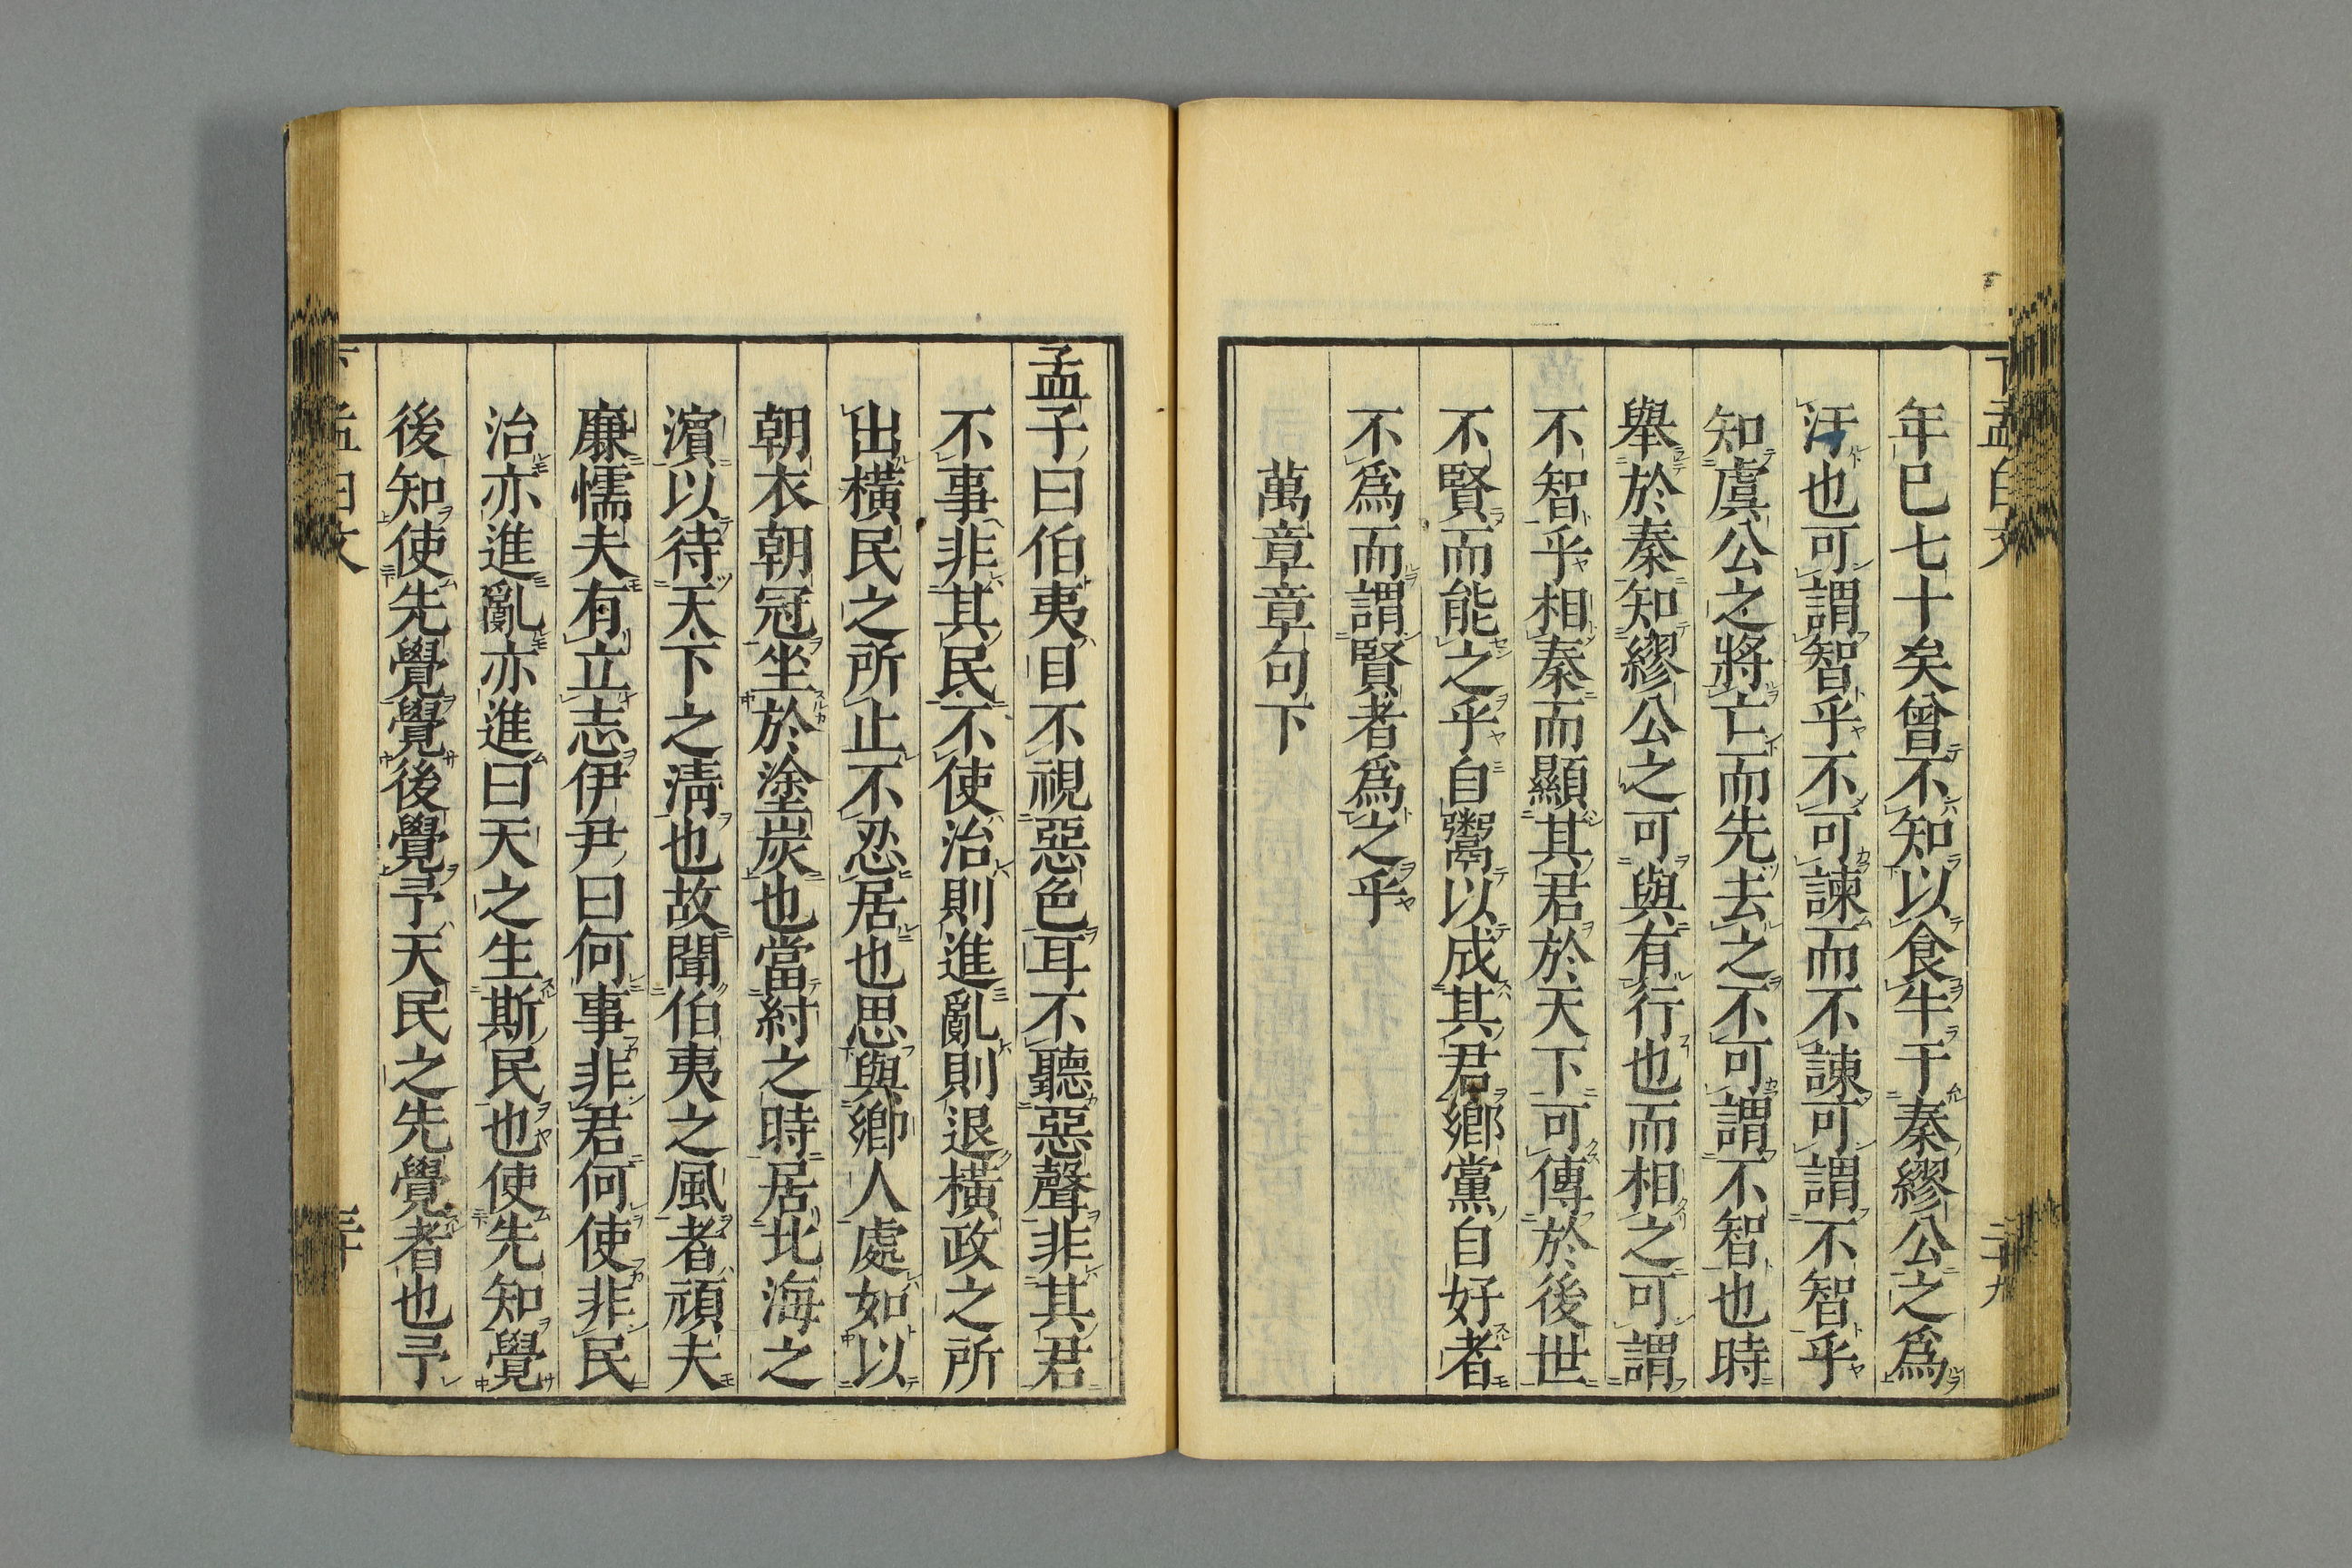 年已七十矣曾不知以食牛干秦繆公之爲
汙也可謂智乎不可諫而不諫可謂不智乎
知虞公之將亡而先去之不可謂不智也時
舉於秦知繆公之可與有行也而相之可謂
不智乎相秦而顯其君於天下可傳於後世
不賢而能之乎自鬻以成其君鄉黨自好者
不爲而謂賢者爲之乎
萬章章句下
孟子曰伯夷目不視惡色耳不聽惡聲非其君
不事非其民不使治則進亂則退橫政之所
出橫民之所止不忍居也思與鄉人處如以
朝衣朝冠坐於塗炭也當紂之時居北海之
濱以待天下之淸也故聞伯夷之風者頑夫
廉懦夫有立志伊尹曰何事非君何使非民
治亦進亂亦進曰天之生斯民也使先知覺
後知使先覺覺後覺予天民之先覺者也予